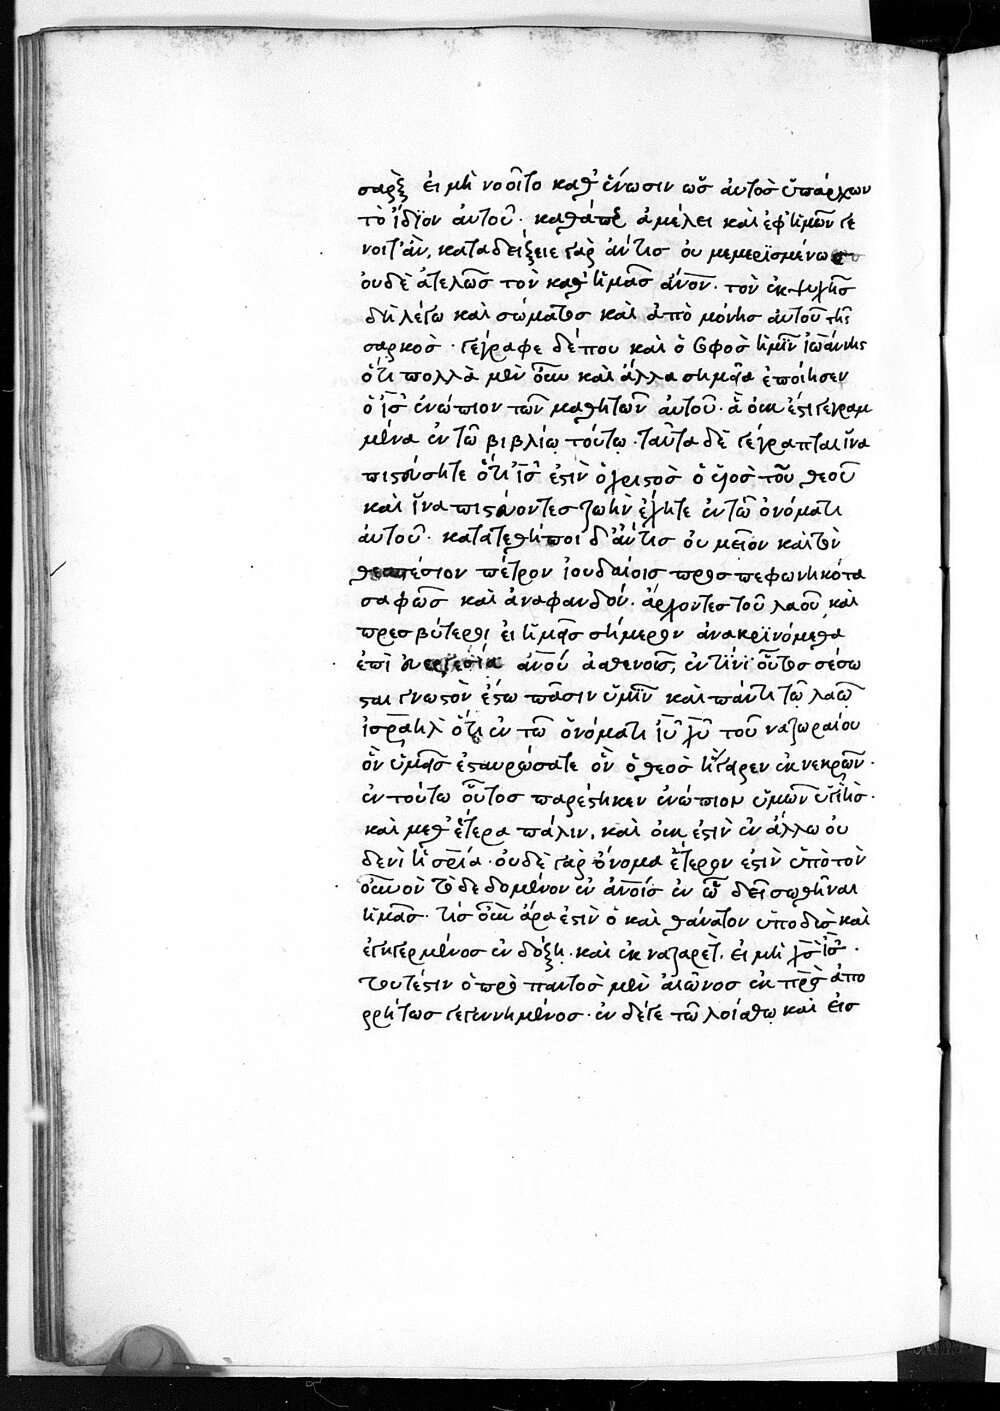 σαρξ εἰ μὴ νοοῖτο καθ' ἕνωσιν ὡς αὐτὸς ὑπάρχων
τὸ ἴδϊον αὐτοῦ· καθάπερ ἀμέλει καὶ ἐφ' ἡμῶν γέ
νοιτ' ἄν, καταδείξειε γὰρ ἄν τις οὐ μεμερϊσμένως
οὐδὲ ἀτελῶς τὸν καθ' ἡμᾶς ἄνο̅ν· τὸν ἐκ ψυχῆς
δὴ λέγω καὶ σώματος καὶ ἀπὸ μόνης αὐτοῦ τῆς
σαρκὸς· γέγραφε δέ που καὶ ὁ σοφὸς ἡμῖν ἰωάννης
ὅτι πολλὰ μὲν οὖν καὶ ἄλλα σημεῖα ἐποίησεν
ὁ ι̅ς̅ ἐνώπιον τῶν μαθητῶν αὐτοῦ· ἃ οὐκ ἔστι γεγραμ
μένα ἐν τῷ βιβλίῳ τούτῳ· ταῦτα δὲ γέγραπται ἵνα
πιστεύσητε ὅτι ι̅ς̅ ἐστὶν ὁ χριστὸς ὁ υἱὸς τοῦ θεοῦ
καὶ ἵνα πιστεύοντες ζωὴν ἔχητε ἐν τῷ ὀνόματι
αὐτοῦ· κατατεθήποι δ' ἄν τις οὐ μεῖον καὶ τὸν
θεσπέσιον πέτρον ἰουδαίοις προσπεφωνηκότα
σαφῶς καὶ ἀναφανδόν· ἄρχοντες τοῦ λαοῦ καὶ
πρεσβύτεροι εἰ ἡμεῖς σήμερον ἀνακρϊνόμεθα
ἐπὶ εὐεργεσία ἀνο̅υ ἀσθενοῦς, ἐν τίνι οὗτος σέσω
σται γνωστὸν ἔστω πᾶσιν ὑμῖν καὶ παντὶ τῷ λαῷ
ἰσραὴλ ὅτι ἐν τῷ ὀνόματι ι̅υ̅ χ̅υ̅ τοῦ ναζωραίου
ὃν ὑμεῖς ἐσταυρώσατε ὃν ὁ θεὸς ἤγειρεν ἐκ νεκρῶν·
ἐν τούτω οὗτος παρέστηκεν ἐνώπιον ὑμῶν ὑγιὴς·
καὶ μεθ' ἕτερα πάλιν, καὶ οὐκ ἐστὶν ἐν ἄλλω οὐ
δενὶ ἡ σ̅ρία· οὐδὲ γὰρ ὄνομα ἕτερον ἐστὶν ὑπὸ τὸν
οὐνον τὸ δεδομένον ἐν ἀνο̅ις ἐν ᾧ δεῖ σωθῆναι
ἡμᾶς· τίς οὖν ἄρα ἐστὶν ὁ καὶ θάνατον ὑποδὺς καὶ
ἐγηγερμένος ἐν δόξῃ· καὶ ἐκ ναζαρέτ· εἰ μὴ χ̅ς̅ ι̅ς̅·
τουτέστιν ὁ πρὸ παντὸς μὲν αἰῶνος ἐκ π̅ρ̅ς̅ ἀπο
ρρήτως γεγεννημένος· ἐν δέ γε τῷ λοίσθῳ καὶ εἰς